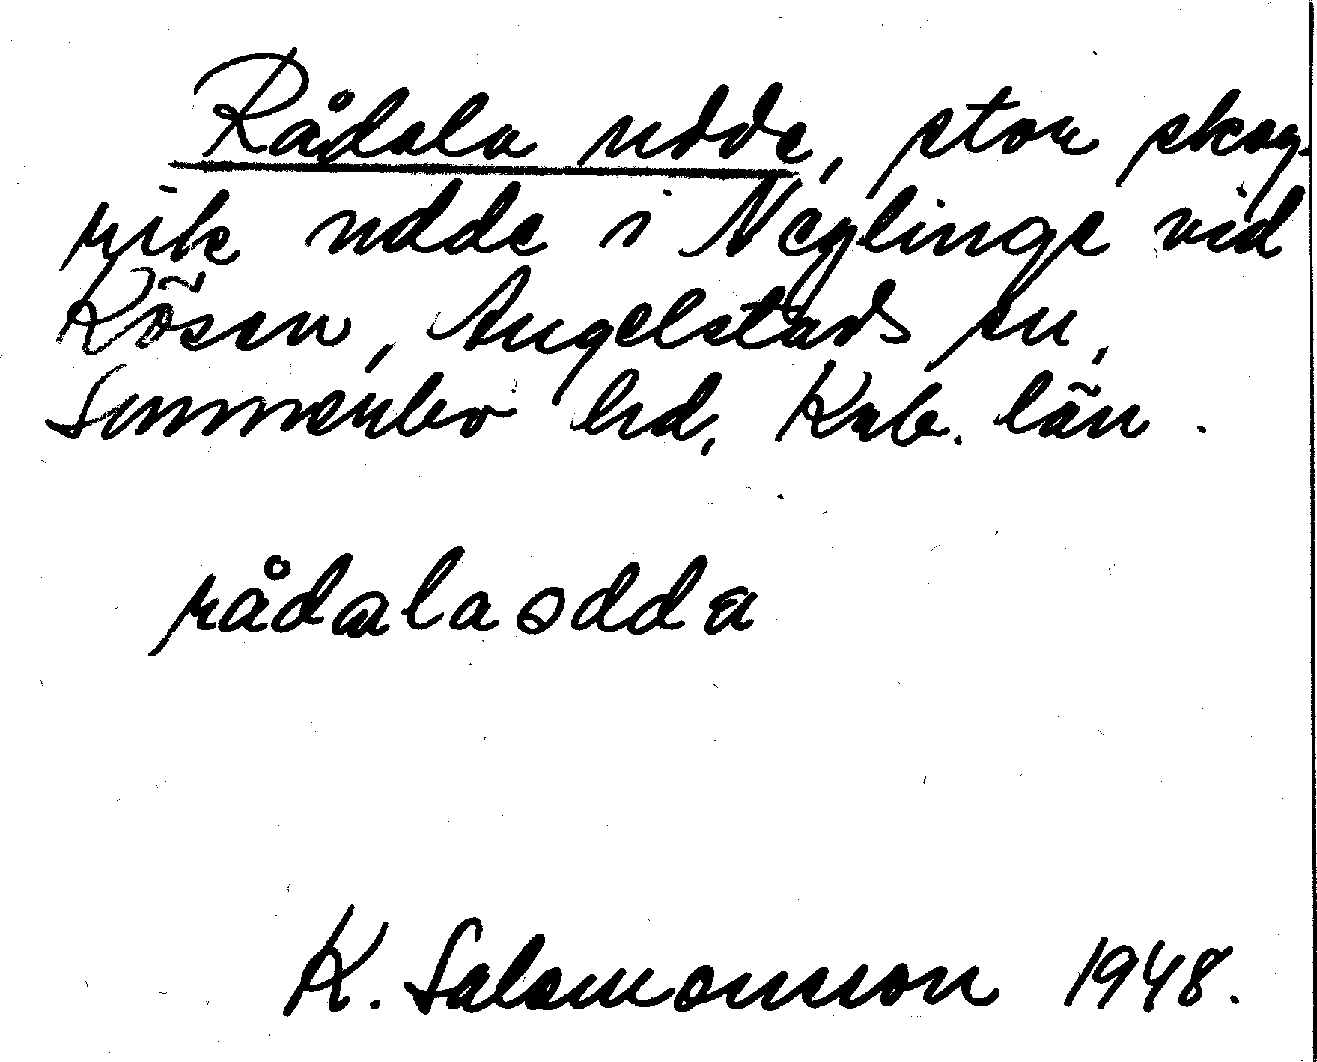 Rådala udde, stor skog-
rik udde i Neglinge vid
Kösen, Angelstads sn,
Sunnerbo hd, Krb. län.
rådalaodda
K. Salomonsson 1948.